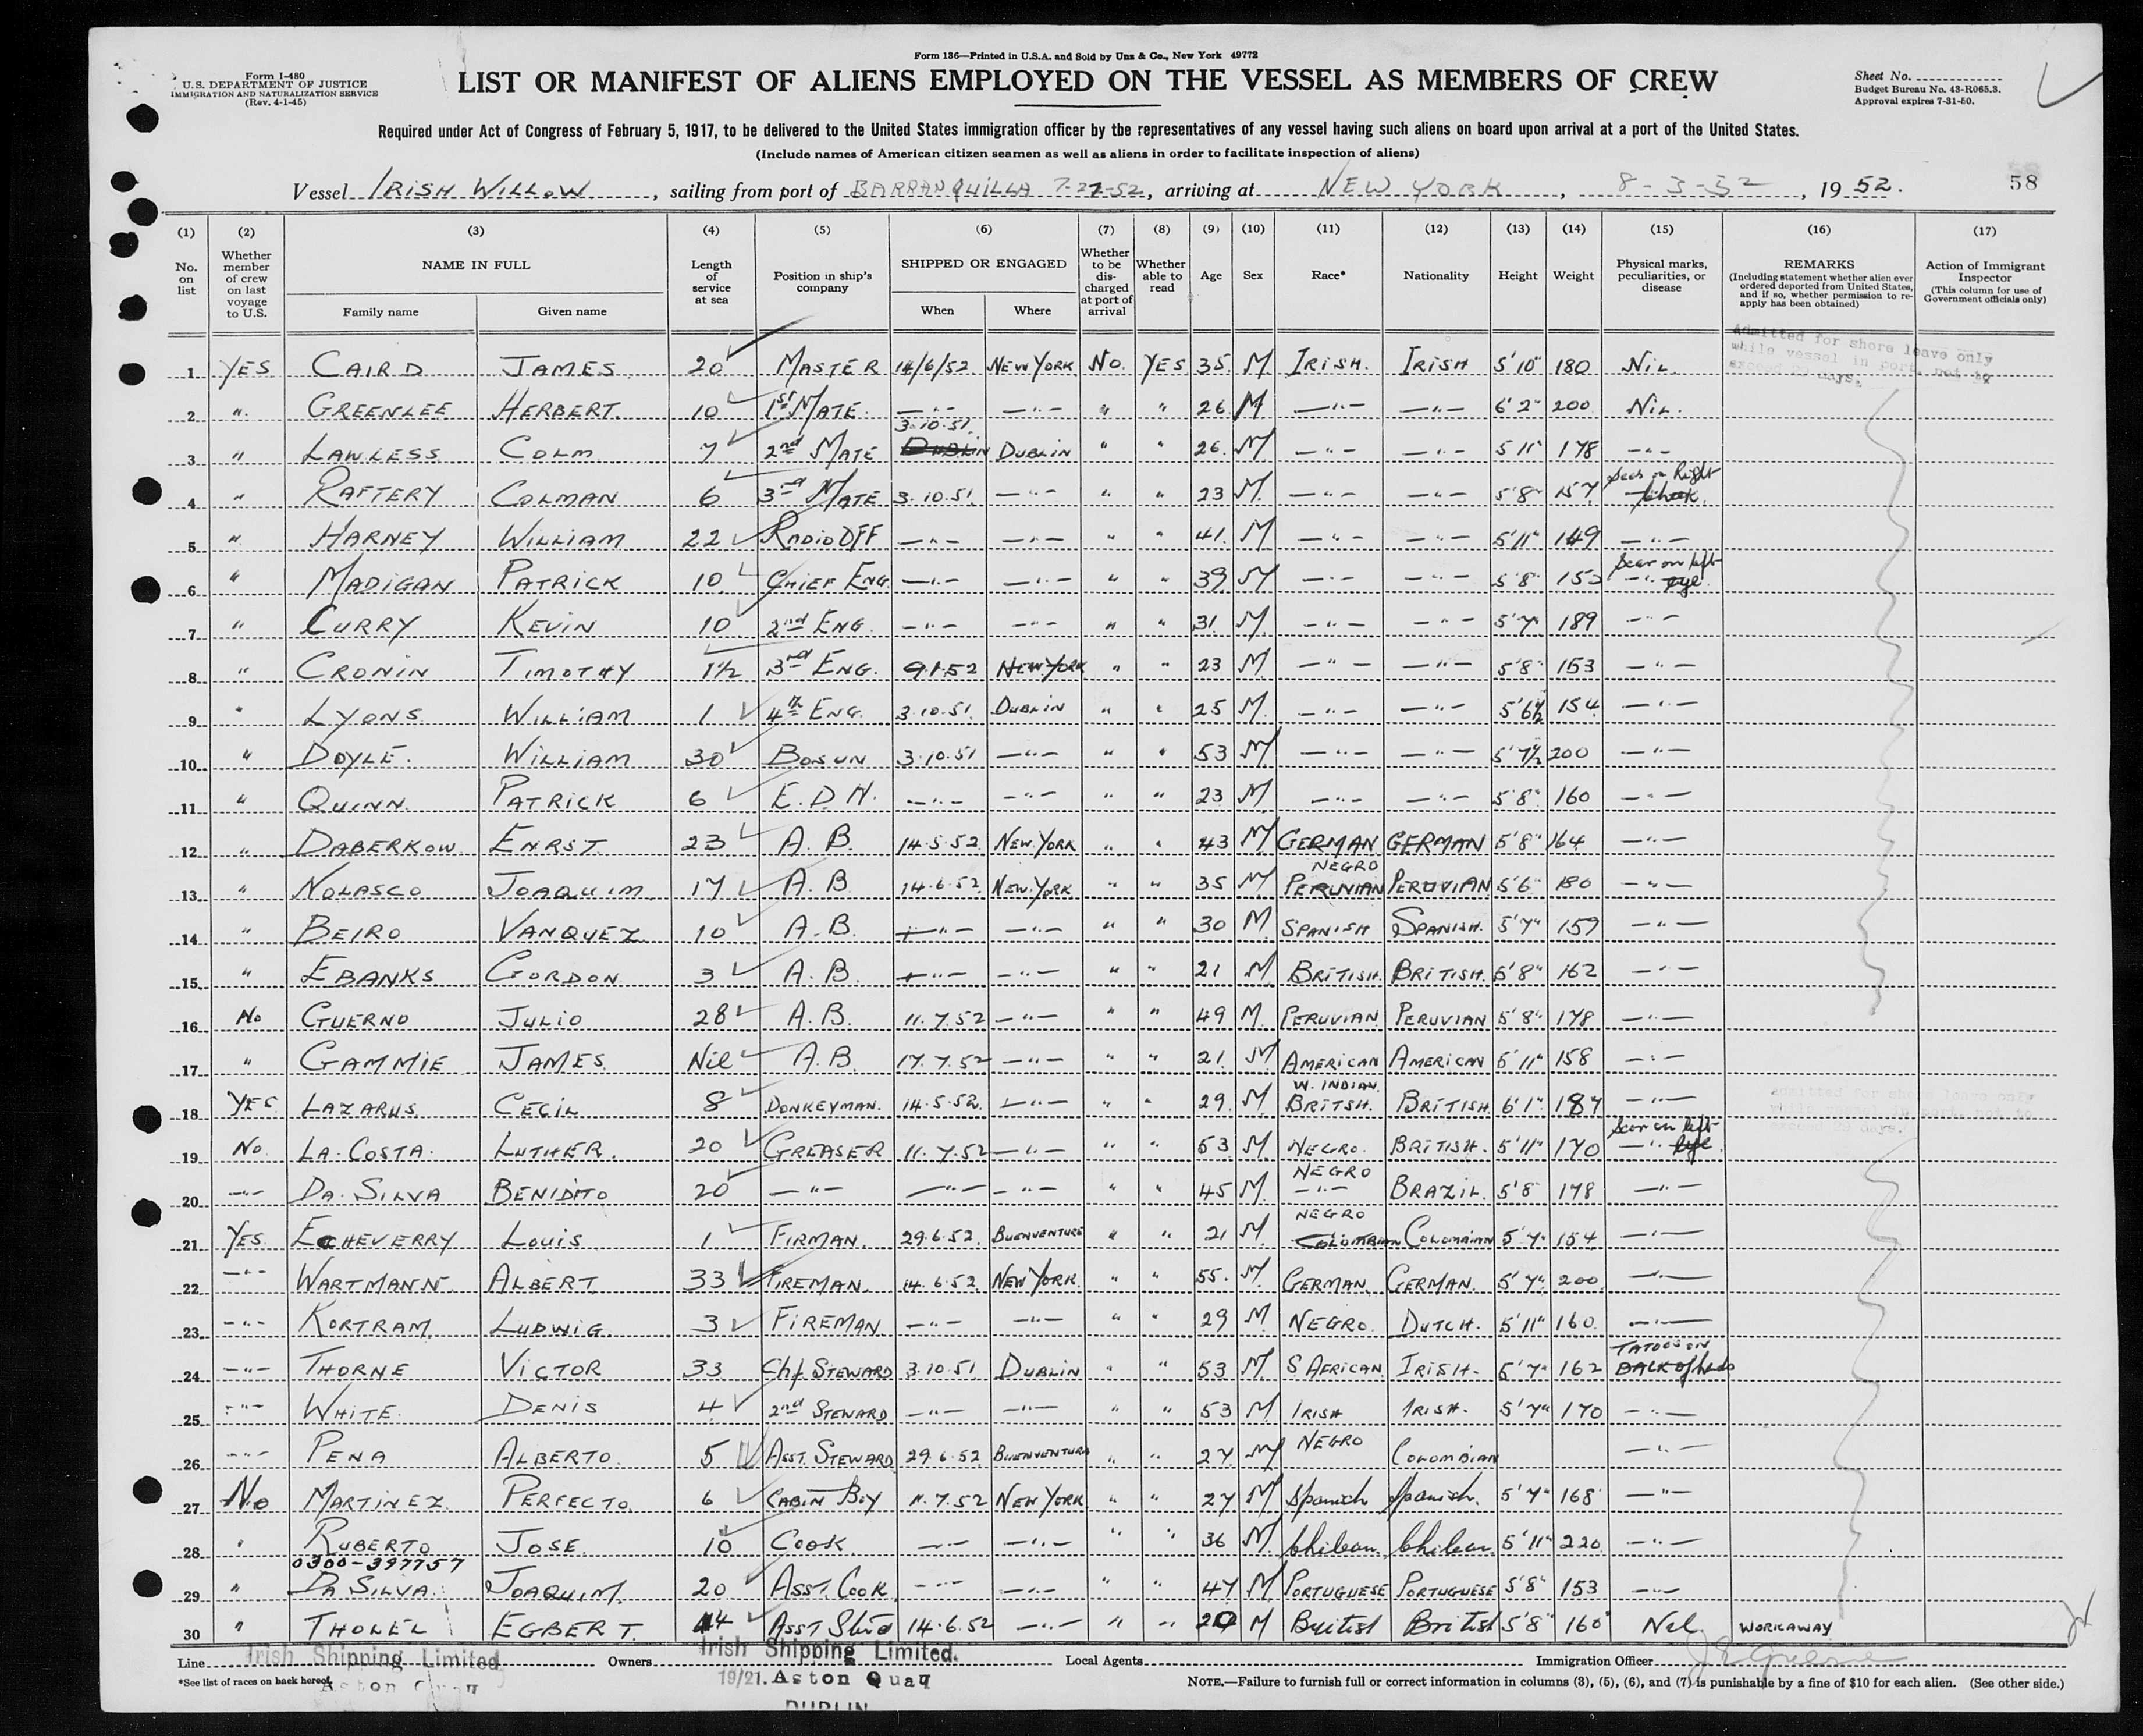 Form 136—Printed in U.S.A. and Sold by Unz & Co., New York 49772
Form I-480
U.S. DEPARTMENT OF JUSTICE
IMMIGRATION AND NATURALIZATION SERVICE
(Rev. 4-1-45)
LIST OR MANIFEST OF ALIENS EMPLOYED ON THE VESSEL AS MEMBERS OF CREW
Sheet No.
Budget Bureau No. 43-R065.3.
Approval expires 7-31-50.
Required under Act of Congress of February 5, 1917, to be delivered to the United States immigration officer by the representatives of any vessel having such aliens on board upon arrival at a port of the United States.
(Include names of American citizen seamen as well as aliens in order to facilitate inspection of aliens)
Vessel IRISH WILLOW, sailing from port of BARRANQUILLA 7-27-52, arriving at NEW YORK, 8-3-52, 1952.
58
(1) (2) (3) (4) (5) (6) (7) (8) (9) (10) (11) (12) (13) (14) (15) (16) (17)
No. on list
Whether member of crew on last voyage to U.S.
NAME IN FULL
Family name
Given name
Length of service at sea
Position in ship's company
SHIPPED OR ENGAGED
When
Where
Whether to be discharged at port of arrival
Whether able to read
Age
Sex
Race*
Nationality
Height
Weight
Physical marks, peculiarities, or disease
REMARKS
(Including statement whether alien ever ordered deported from United States, and if so, whether permission to reapply has been obtained)
Action of Immigrant Inspector
(This column for use of Government officials only)
Admitted for shore leave only
while vessel in port, not to
exceed 29 days.
1 YES CAIRD JAMES 20 MASTER 14/6/52 NEW YORK No. YES 35 M IRISH. IRISH 5'10" 180 NIL
2 " GREENLEE HERBERT. 10 1ST MATE —"— —"— " " 26 M —"— —"— 6'2" 200 NIL.
3 " LAWLESS COLM 7 2nd MATE 3.10.51. DUBLIN DUBLIN " " 26. M —"— —"— 5'11" 178 —"—
4 " RAFTERY COLMAN 6 3rd MATE 3.10.51. —"— " " 23 M. —"— —"— 5'8" 157 Scar on Right Cheek.
5 " HARNEY WILLIAM 22 RADIO OFF —"— —"— " " 41. M —"— —"— 5'11" 149 —"—
6 " MADIGAN PATRICK 10 CHIEF ENG. —"— —"— " " 39. M —"— —"— 5'8" 153 Scar on left —"— eye.
7 " CURRY KEVIN 10 2nd ENG. —"— —"— " " 31. M. —"— —"— 5'7" 189 —"—
8 " CRONIN TIMOTHY 1½ 3rd ENG. 9.1.52 NEW YORK " " 23 M —"— —"— 5'8" 153 —"—
9 " LYONS WILLIAM 1 4th ENG. 3.10.51. DUBLIN " " 25 M. —"— —"— 5'6½ 154 —"—
10 " DOYLE. WILLIAM 30 BOSUN 3.10.51 —"— " " 53 M —"— —"— 5'7½ 200 —"—
11 " QUINN PATRICK 6 E.D.H. —"— —"— " " 23 M —"— —"— 5'8" 160 —"—
12 " DABERKOW ENRST 23 A.B. 14.5.52. NEW YORK " " 43 M GERMAN GERMAN 5'8" 164 —"—
13 " NOLASCO JOAQUIM 17 A.B 14.6.52. NEW YORK " " 35 M NEGRO PERUVIAN PERUVIAN 5'6" 180 —"—
14 " BEIRO VANQUEZ 10 A.B. —"— —"— " " 30 M. SPANISH SPANISH. 5'7" 159 —"—
15 " EBANKS GORDON 3 A.B. —"— —"— " " 21 M BRITISH. BRITISH. 5'8" 162 —"—
16 No GUERNO JULIO 28 A.B. 11.7.52 —"— " " 49 M. PERUVIAN PERUVIAN 5'8" 178 —"—
17 " GAMMIE JAMES. Nil A.B 17.7.52 —"— " " 21. M AMERICAN AMERICAN 5'11" 158 —"—
18 YES LAZARUS CECIL 8 DONKEYMAN. 14.5.52. —"— " " 29. M W. INDIAN. BRITSH. BRITISH 6'1" 187 —"—
admitted for shore leave only
while vessel in port, not to
exceed 29 days.
19 No. LA COSTA. LUTHER. 20 GREASER 11.7.52 —"— " " 53 M. NEGRO. BRITISH. 5'11" 170 Scar on left —"— Eye.
20 —"— DA SILVA BENIDITO 20 —"— —"— —"— " " 45 M. NEGRO —"— BRAZIL. 5'8 178 —"—
21 YES. ECHEVERRY LOUIS 1 FIRMAN. 29.6.52. BUENVENTURE " " 21 M NEGRO COLOMBIAN COLOMBIAN 5'7" 154 —"—
22 —"— WARTMANN. ALBERT 33 FIREMAN. 14.6.52. NEW YORK. " " 55. M. GERMAN. GERMAN. 5'7". 200. —"—
23 —"— KORTRAM LUDWIG. 3 FIREMAN —"— —"— " " 29 M NEGRO. DUTCH. 5'11" 160. —"—
24 —"— THORNE VICTOR 33 Chf STEWARD 3.10.51 DUBLIN " " 53 M. S AFRICAN. IRISH. 5'7" 162 TATOOS ON BACK of hnds
25 —"— WHITE. DENIS 4 2nd STEWARD —"— —"— " " 53 M IRISH IRISH. 5'7" 170 —"—
26 —"— PENA ALBERTO. 5 ASST. STEWARD 29.6.52 BUENVENTURA " " 27 M NEGRO COLOMBIAN —"—
27 No MARTINEZ PERFECTO. 6 CABIN BOY 11.7.52 NEW YORK " " 27 M Spanish Spanish. 5'7" 168 —"—
28 " RUBERTO JOSE. 10 COOK. —"— —"— " " 36 M. Chilean. Chilean. 5'11" 220. —"—
0300-397757
29 " DA SILVA. JOAQUIM. 20 ASST. COOK —"— —"— " " 47 M PORTUGUESE PORTUGUESE 5'8" 153 —"—
30 " THOLEL EGBERT. 44 ASST Stwd 14.6.52 —"— " " 20 M British British 5'8" 160 Nil. WORKAWAY
Line Irish Shipping Limited
Owners Irish Shipping Limited.
Local Agents
Immigration Officer
*See list of races on back hereof.
Aston Quay
19/21. Aston Quay
DUBLIN
NOTE.—Failure to furnish full or correct information in columns (3), (5), (6), and (7) is punishable by a fine of $10 for each alien. (See other side.)